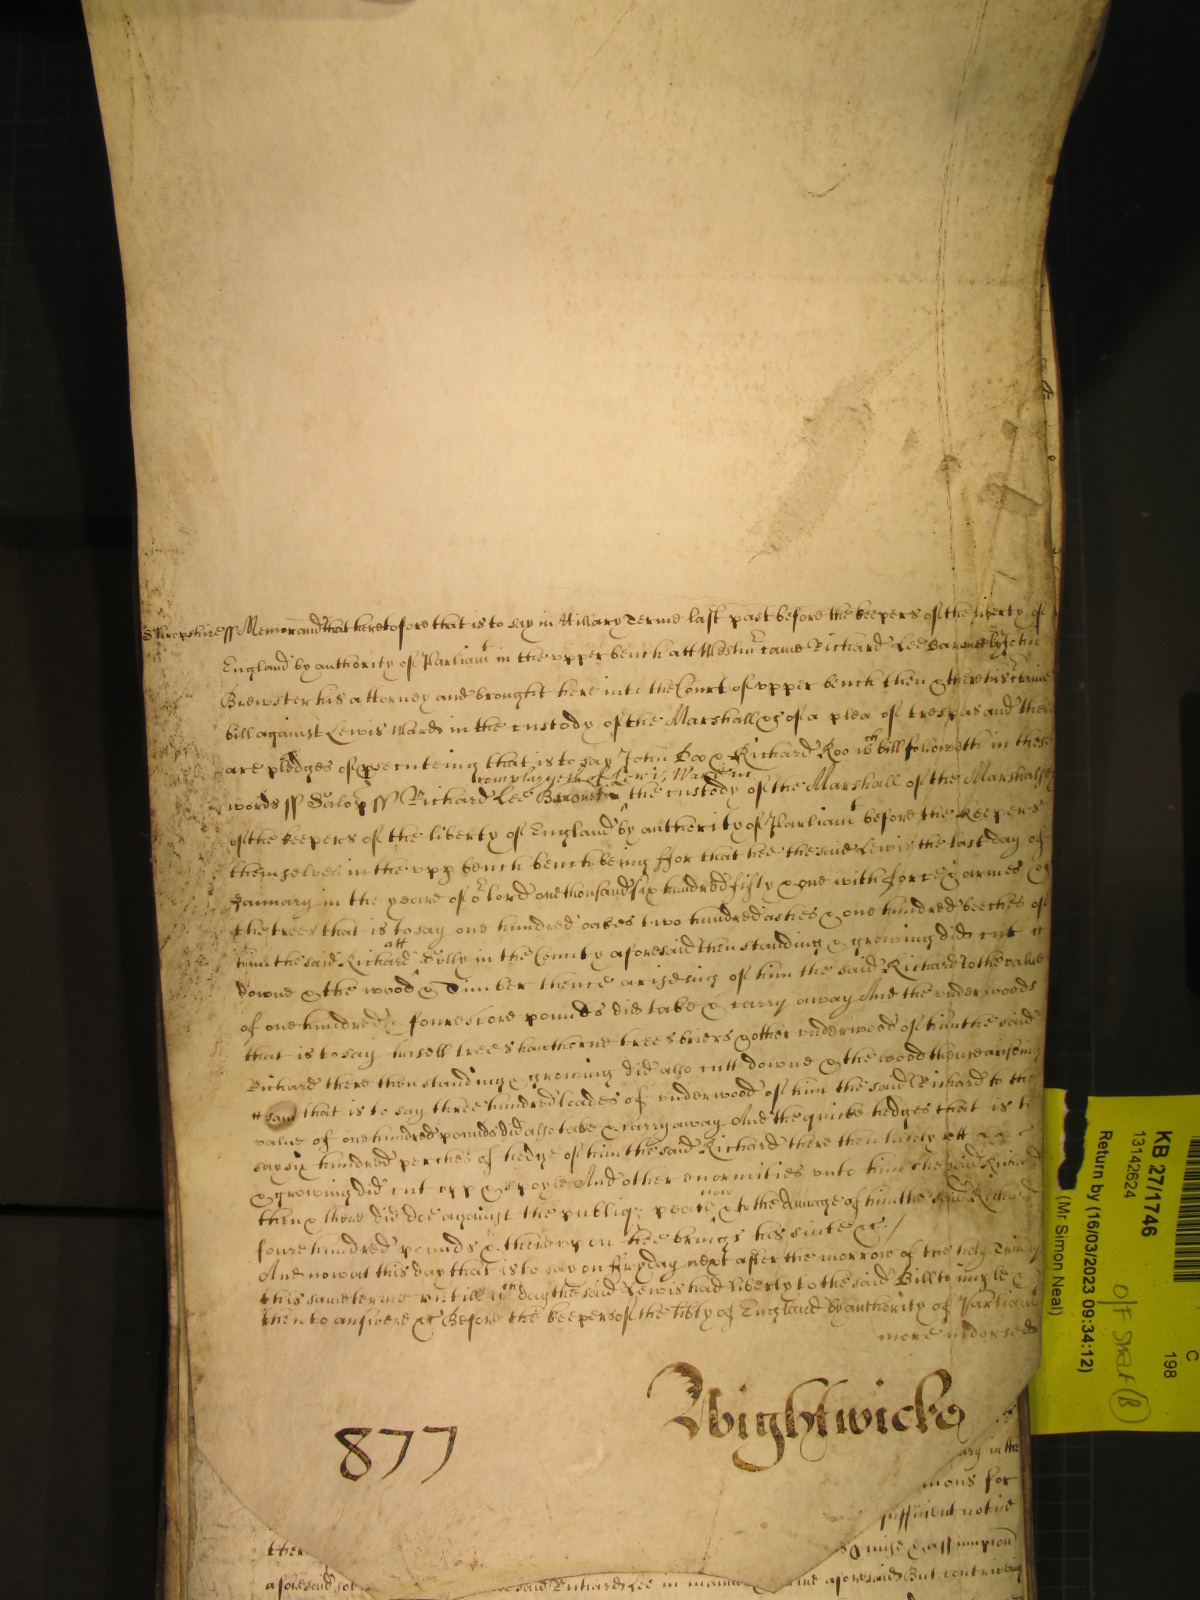 Shropshire ss Memorand that heretofore that is to say in Hillary Terme last past before the keepers of the liberty of
England by authority of Parliamt in the upper bench att Westmr came Richard Lee Baronett by John
Brewster his attorney and brought here into the Court of upper bench then & there his certaine
bill against Lewis Ward in the custody of the Marshall &c of a plea of trespas and there
are pledges of prosecuteing that is to say John Doo & Richard Roo wch bill followeth in these
words ss Salop ss Richard Lee Baronett complayneth of Lewis Ward in the custody of the Marshall of the Marshalsey
of the keepers of the liberty of England by authority of Parliamt before the keepers
themselves in the upp bench bench being ffor that hee the said Lewis the last day of
January in the yeare of or Lord one thousand six hundred fifty & one with force & armes &c
the trees that is to say one hundred oakes two hundred ashes & one hundred beeches of
him the said Richard att in the County aforesaid then standing & growing did cutt
downe & the wood & Timber thence ariseing of him the said Richard to the value
of one hundred & fourescore pounds did take & carry away And the underwoods
that is to say hasell trees hawthorne trees briers & other underwood of him the said
Richard there then standing & growing did also cutt downe & the wood thence ariseing
that is to say three hundred loades of underwood of him the said Richard to the
value of one hundred pounds did also take & carry away And the quicke hedges that is to
say six hundred perches of hedge of him the said Richard there then lately sett
& growing did cut upp & spoyle And other enormities unto him the said Richard
then & there did doe against the publiq peace & to the damage of him the said Richard
foure hundred pounds & thereupon hee brings his suite &c /
And now att this day that is to say on ffryday next after the morrow of the holy Trinity
this same terme untill wch day the said Lewis had liberty to the said Bill to imple &
then to answere &c Before the keepers of the lib'ty of England by authority of Parliamt
more indorsed
Wightwicke
877
ary in the
mons for
sufficient notice
ther
& assumption
aforesaid
said Richard Lee in manner
aforesaid But contriveing
KB 27/1746
13142624
Return by (16/03/2023 09:34:12)
(Mr Simon Neal)
C
198
O/F Shelf (B)